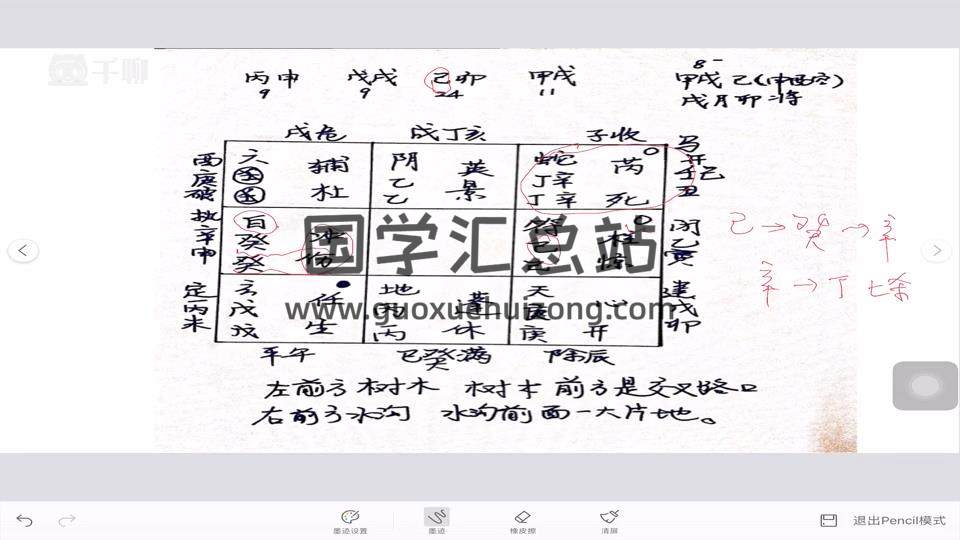 千聊
丙申 戊戌 己卯 甲戌
9 9 24 11
8一
甲戌己(申酉空)
戌月卯将
戌危 戌丁亥 子收
六 辅 阴 英 蛇 芮
乙 丁辛
杜 乙 景 丁辛 死
马
白 冲 符 柱
癸 己
癸 伤 惊
玄 任 地 蓬 天 心
戊 丙 庚
戊 生 丙 休 庚 开
执辛申
定丙未
闭乙寅
建戊卯
平午 己癸满 除辰
左前方树木 树木前方是交叉路口
右前方水沟 水沟前面一大片地。
己→癸→辛
辛→丁七杀
国学汇总站
www.guoxuehuizong.com
墨迹设置 墨迹 橡皮擦 清屏 退出Pencil模式